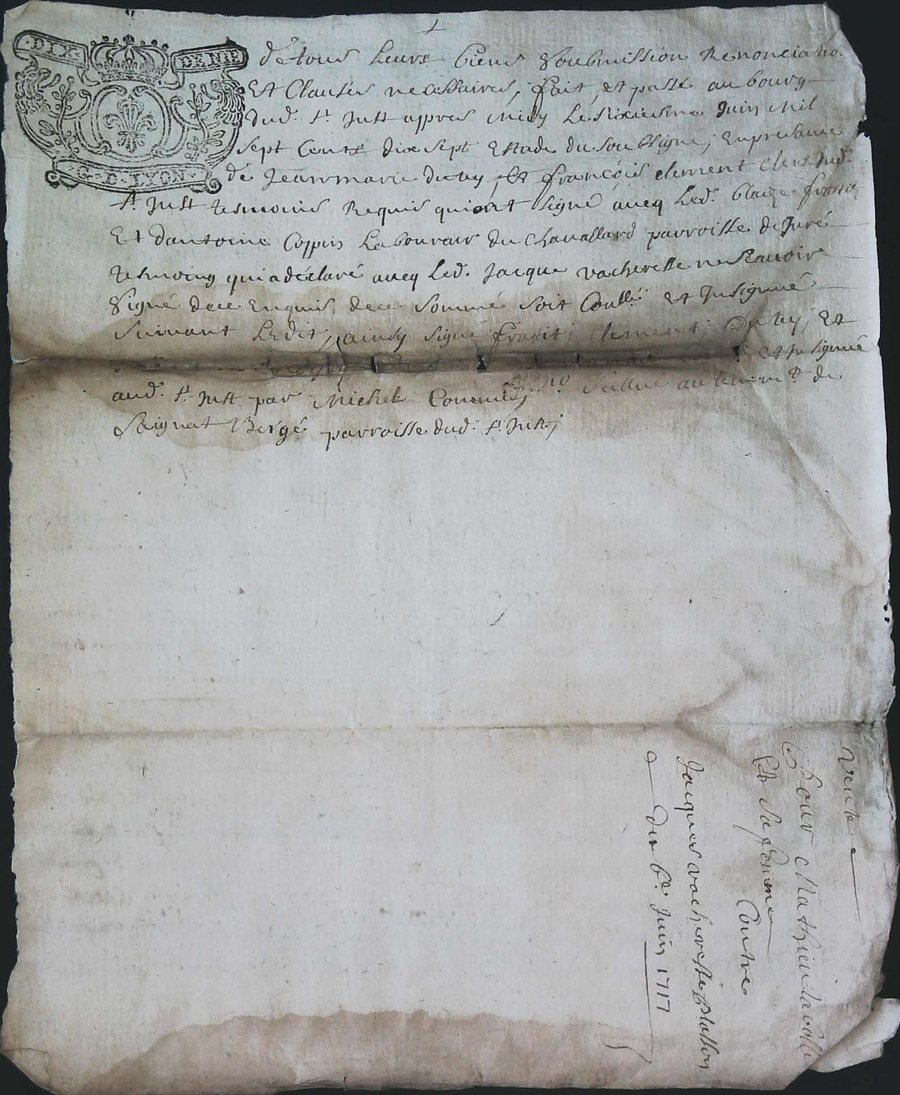 DIX DENIE
G. D. LYON
de tous leurs biens Soubmission Renonciatio
Et Clauses necessaires, fait, et passé au bourg
dud. St. Just appres midy Le sixiesme Juin Mil
Sept Cents dix sept Estude du soubsigné, En presance
de Jean marie dutey, Et françois clement clerc dud.
St. Just tesmoins Requis qui ont signé avecq Led.
Et d'antoine Coppin Laboureur du Chavallard parroisse de Juré
tesmoing qui a déclaré avecq Led. Jacque vacheresse ne scavoir
Signé de ce Enquis, de ce Sommé soit Et Insignué
Suivant Ledit, ainsy signé Clement, Et
et Insignué
aud. St. Just par Michel Commis de
Saignat Bergé parroisse dud. St. Just,
Vente
Pour Mathieu
Et Sa femme
Contre
Jacques vacheresse
du 6e. Juin 1717